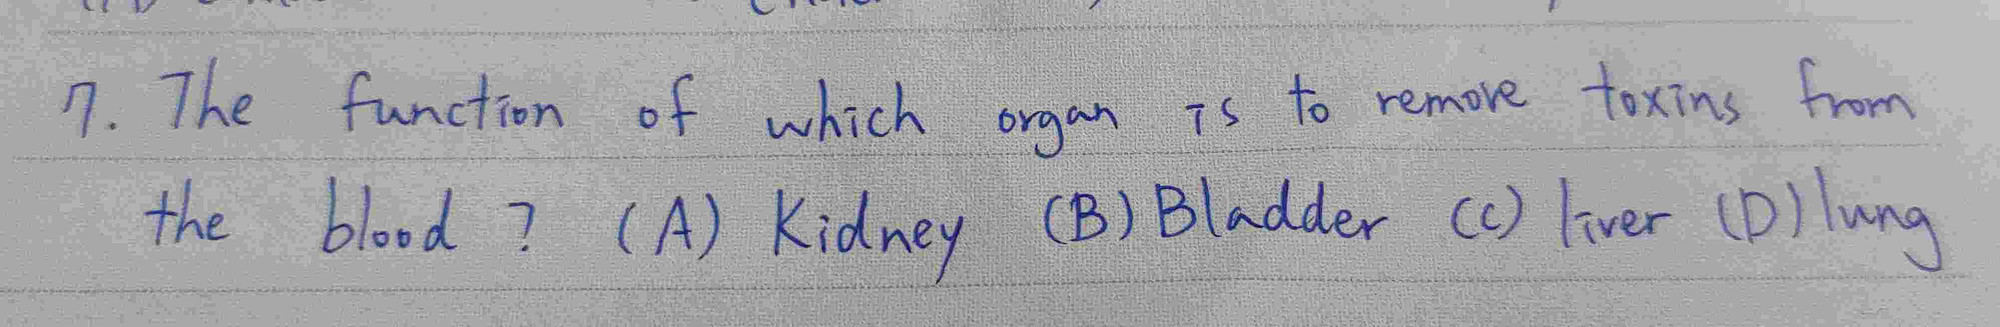 7. The function of which organ is to remove toxins from
the blood ? (A) Kidney (B) Bladder (C) liver (D) lung